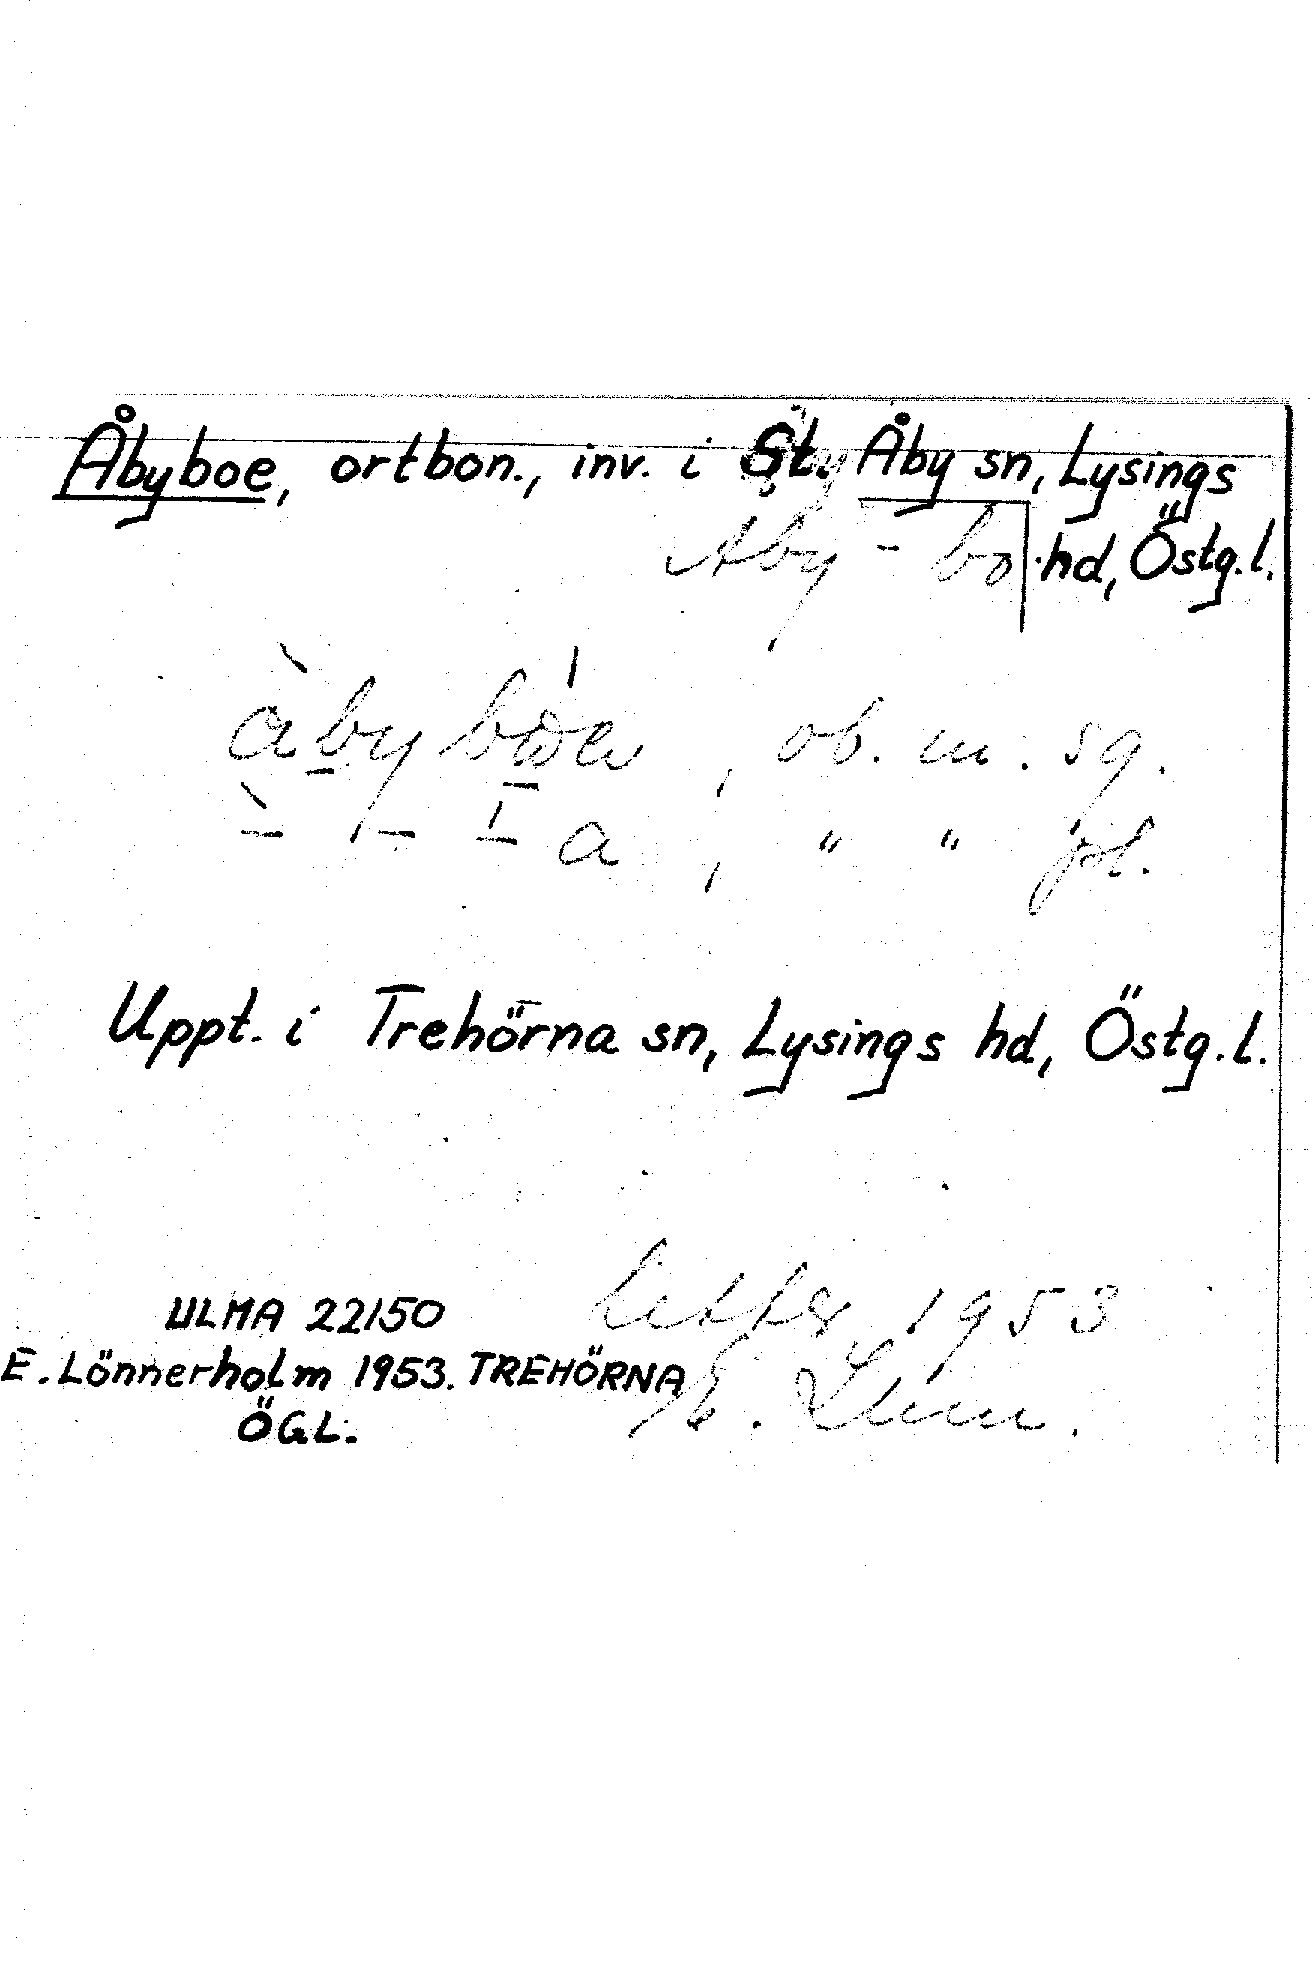 Åbyboe, ortbon., inv. i St. Åby sn, Lysings
Åby - bo hd, Östg.l.
åby boe, ob. m. sg.
– – – a, " " pl.
Uppt. i Trehörna sn, Lysings hd, Östg.l.
ULMA 22150 1953
E. Lönnerholm 1953. TREHÖRNA E.
ÖGL.